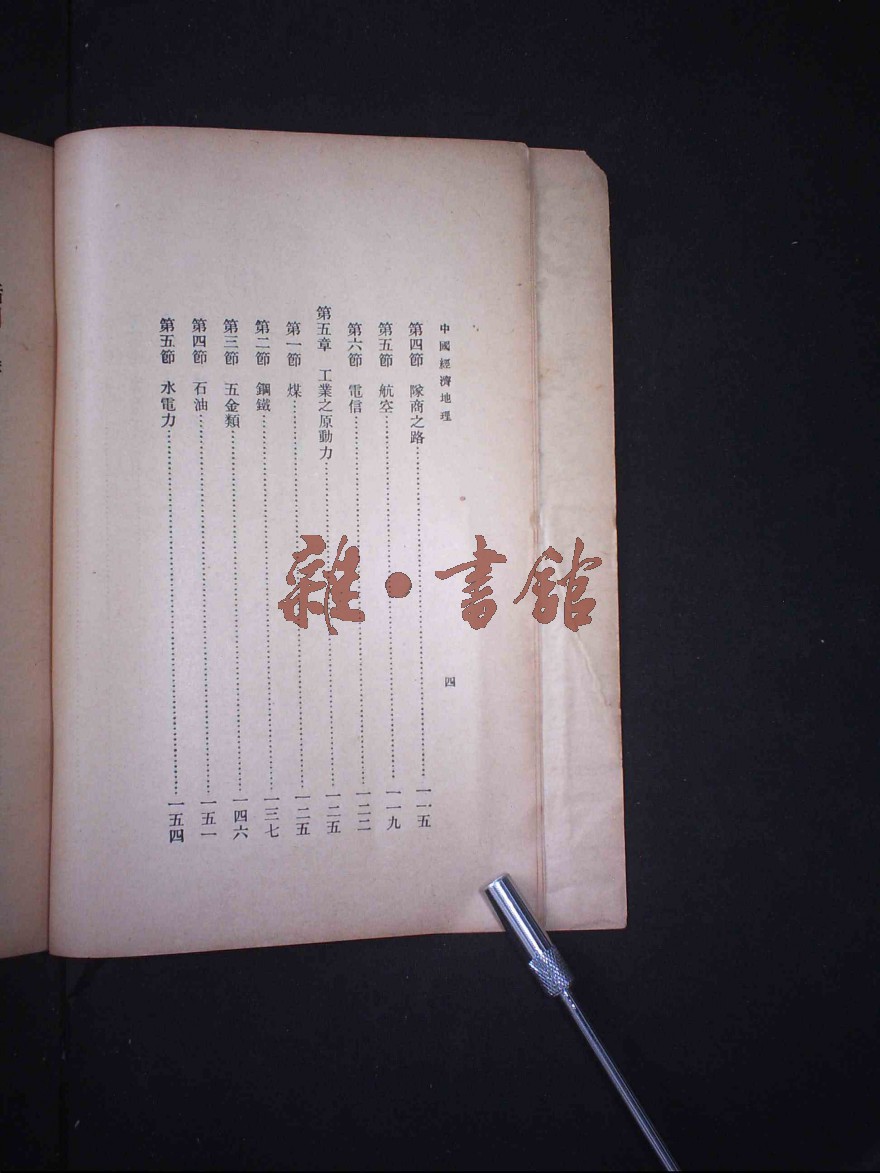 中國經濟地理
四
第四節 隊商之路…………一一五
第五節 航空…………一一九
第六節 電信…………一二二
第五章 工業之原動力…………一二五
第一節 煤…………一二五
第二節 鋼鐵…………一三七
第三節 五金類…………一四六
第四節 石油…………一五一
第五節 水電力…………一五四
雜·書館